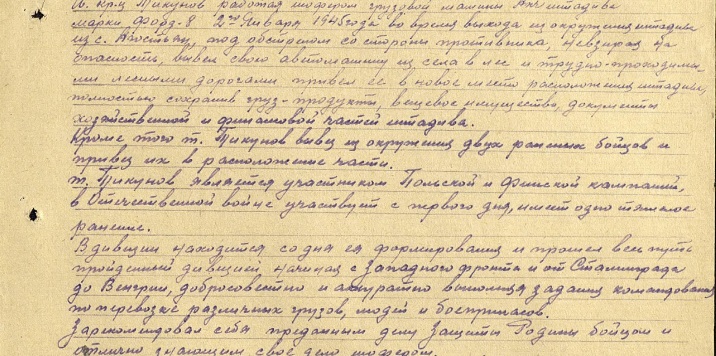 Кр-ц Тикунов работая шофером грузовой машины АХЧ штадива
марки Форд-8 2го Января 1945 года во время выхода из окружения штадива
из с. Агостьян, под обстрелом со стороны противника, невзирая на
опасность, вывел свою автомашину из села в лес и трудно-проходимы-
ми лесными дорогами привел ее в новое место расположения штадива,
полностью сохранив груз-продукты, вещевое имущество, документы
хозяйственной и финансовой частей штадива.
Кроме того т. Тикунов вывез из окружения двух раненых бойцов и
привез их в расположение части.
т. Тикунов является участником Польской и Финской кампаний,
в Отечественной войне участвует с первого дня, имеет одно тяжелое
ранение.
В дивизии находится со дня ея формирования и прошел весь путь
пройденный дивизией начиная с Западного фронта и от Сталинграда
до Венгрии, добросовестно и аккуратно выполняя задания командования
по перевозке различных грузов, людей и боеприпасов.
Зарекомендовал себя преданным делу Защиты Родины бойцом и
отлично знающим свое дело шофером.